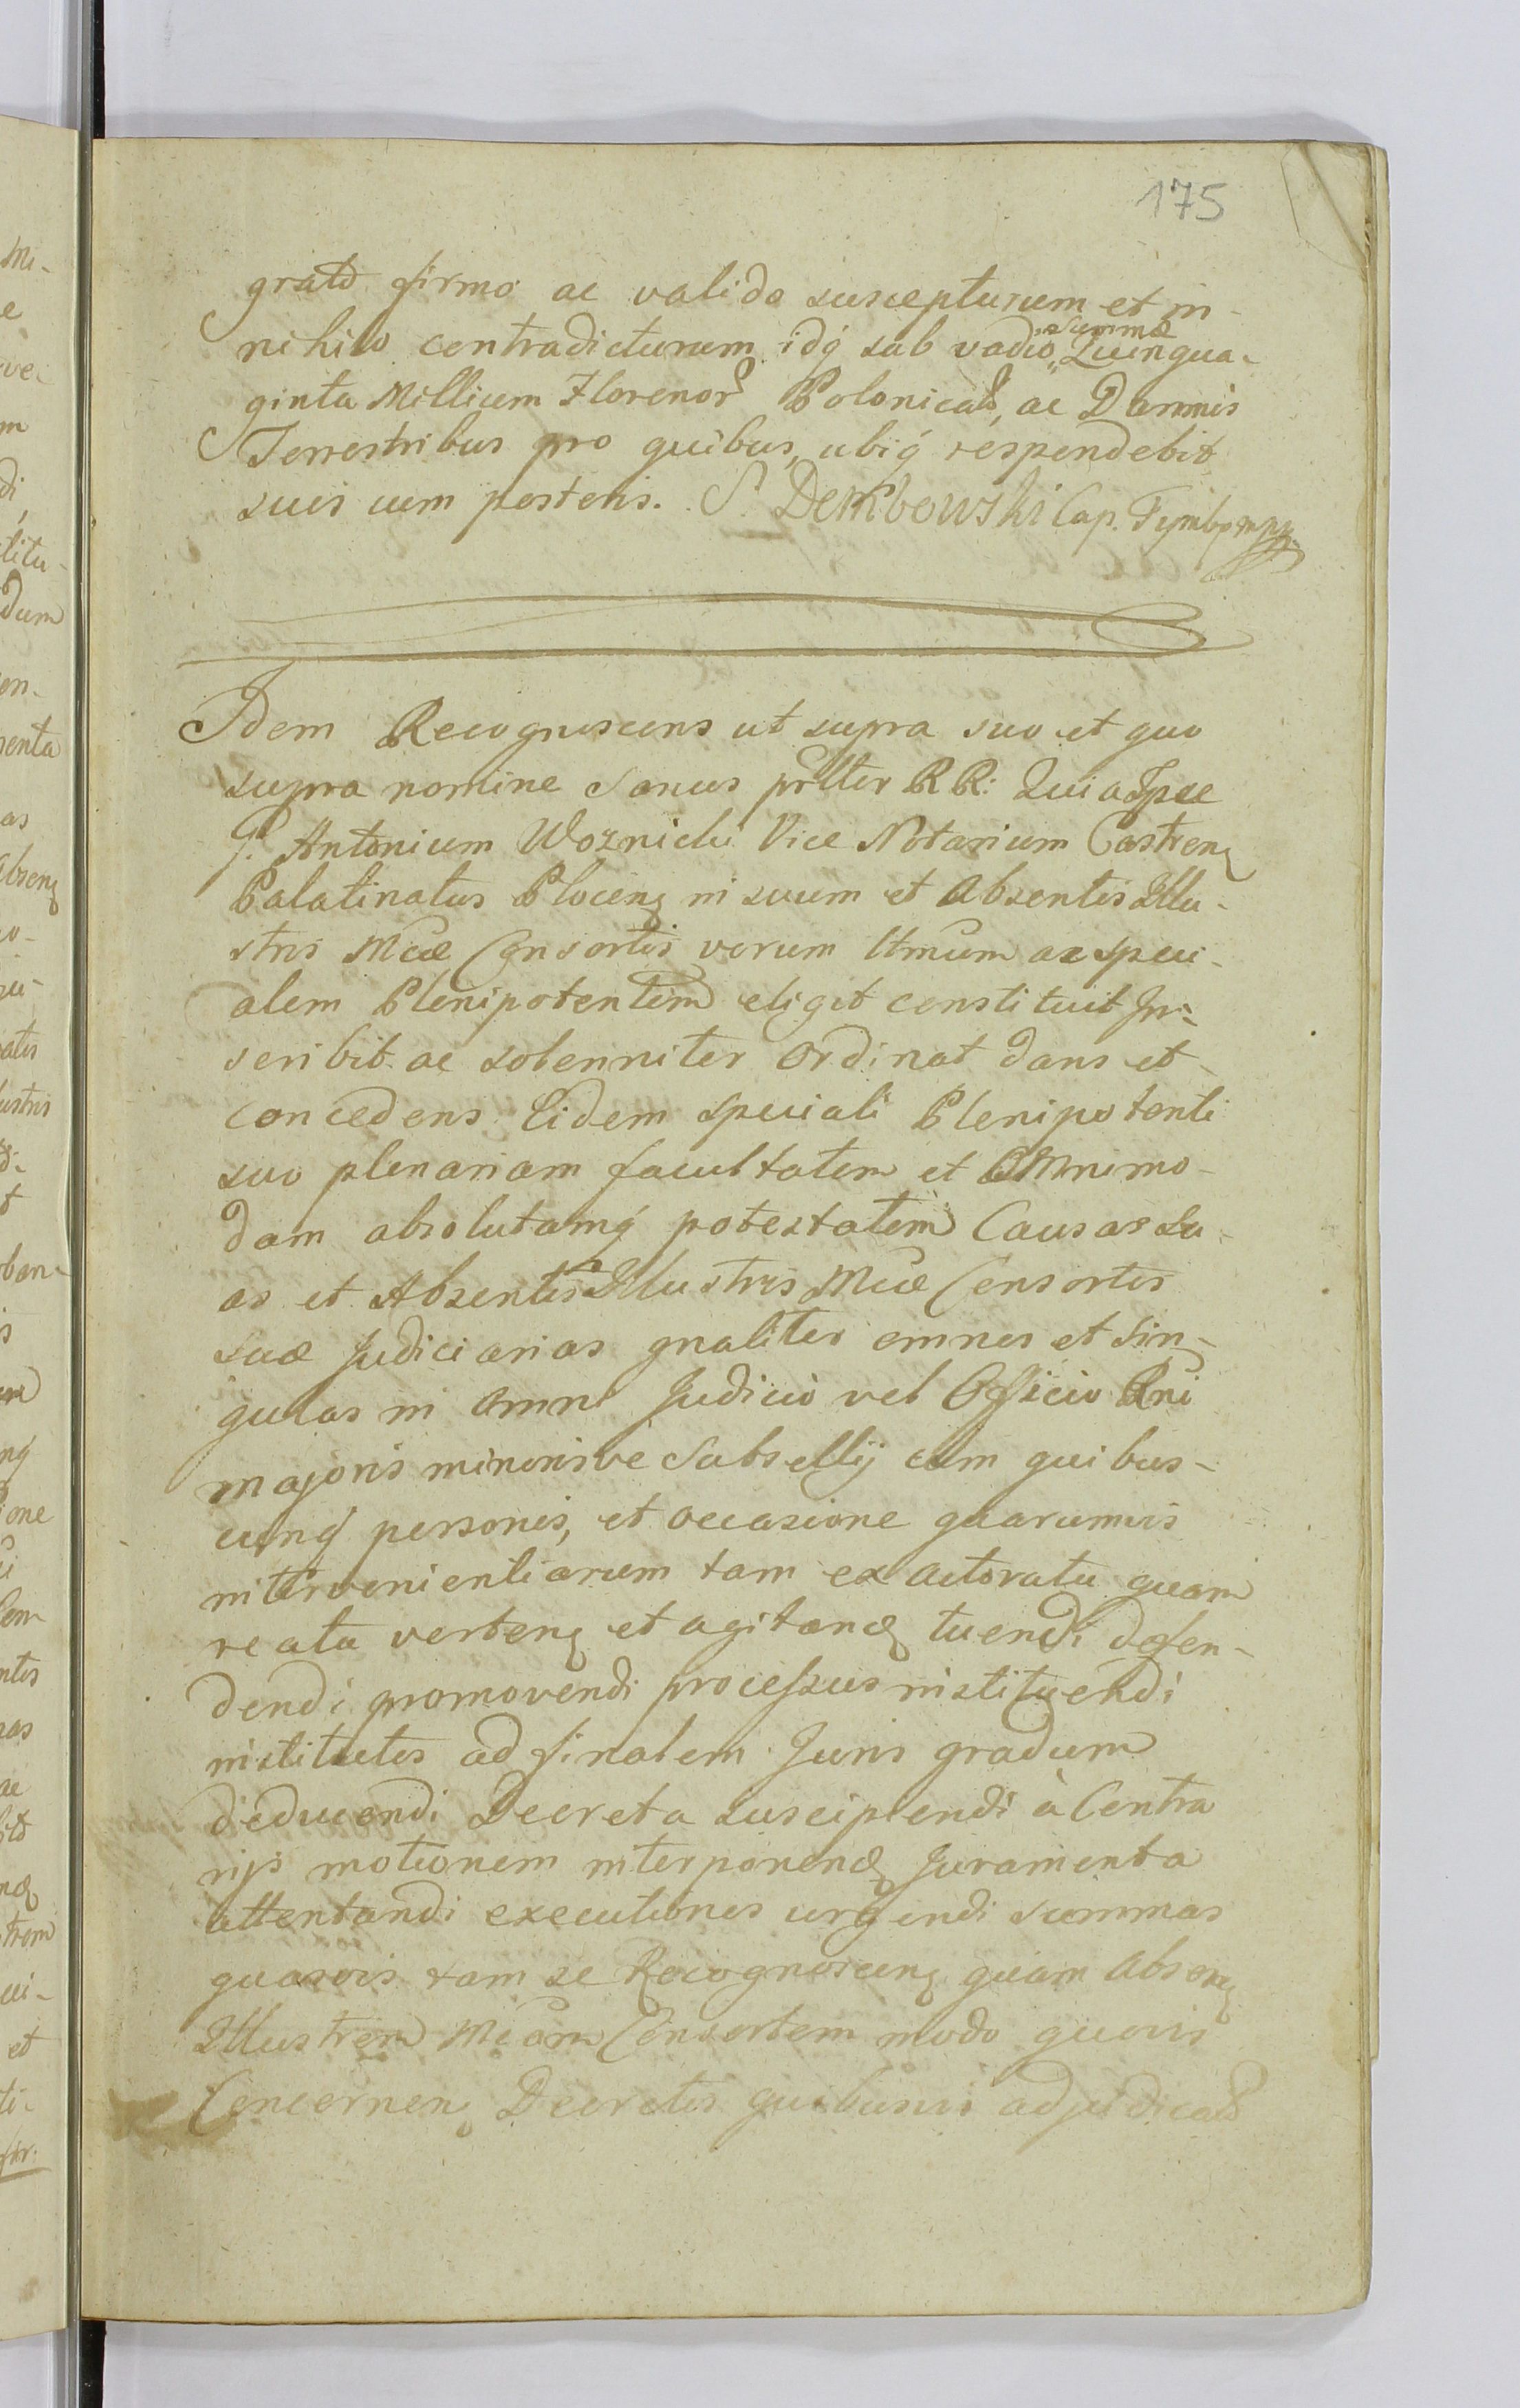 175
grato firmo ac valido suscepturum et in
nihilo contradicturum idq sub vadio summæ Quinqua-
ginta Millium Florenor Polonical, ac Damnis
Terrestribus pro quibus, ubiq respondebit
suis cum posteris. S. Dembowski Cap. Tymb mpp
Idem Recognoscens ut supra suo et quo
supra nomine Sanus prltter RR: Quia Spec
G. Antonium Woznicki Vice Notarium Castren
Palatinatus Plocen in suum et Absentis Illu-
stris Mcæ Consortis verum ltmum ac speci-
alem Plenipotentem eligit constituit In-
scribit ac solenniter Ordinat dans et
concedens Eidem speciali Plenipotenti
suo plenariam facultatem et Omnimo-
dam absolutamq potestatem Causas su-
as et Absentis Illustris Mcæ Consortis
suæ Judiciarias gnaliter omnes et sin-
gulas in omni Judicio vel Officio Rni
majoris minorisve Subsellij cum quibus-
cunq personis, et occasione quarumvis
intervenientiarum tam ex actoratu quam
reatu verten et agitand tuendi defen-
dendi promovendi processus instituendi
institutos ad finalem Juris gradum
deducendi Decreta suscipiendi à Contra
rijs motionem interponend Juramenta
attentandi executiones urgendi summas
quasvis tam se Recognoscen quam absen
Illustrem Mcam Consortem modo quovis
Concernen Decretis quibusvis adjudical